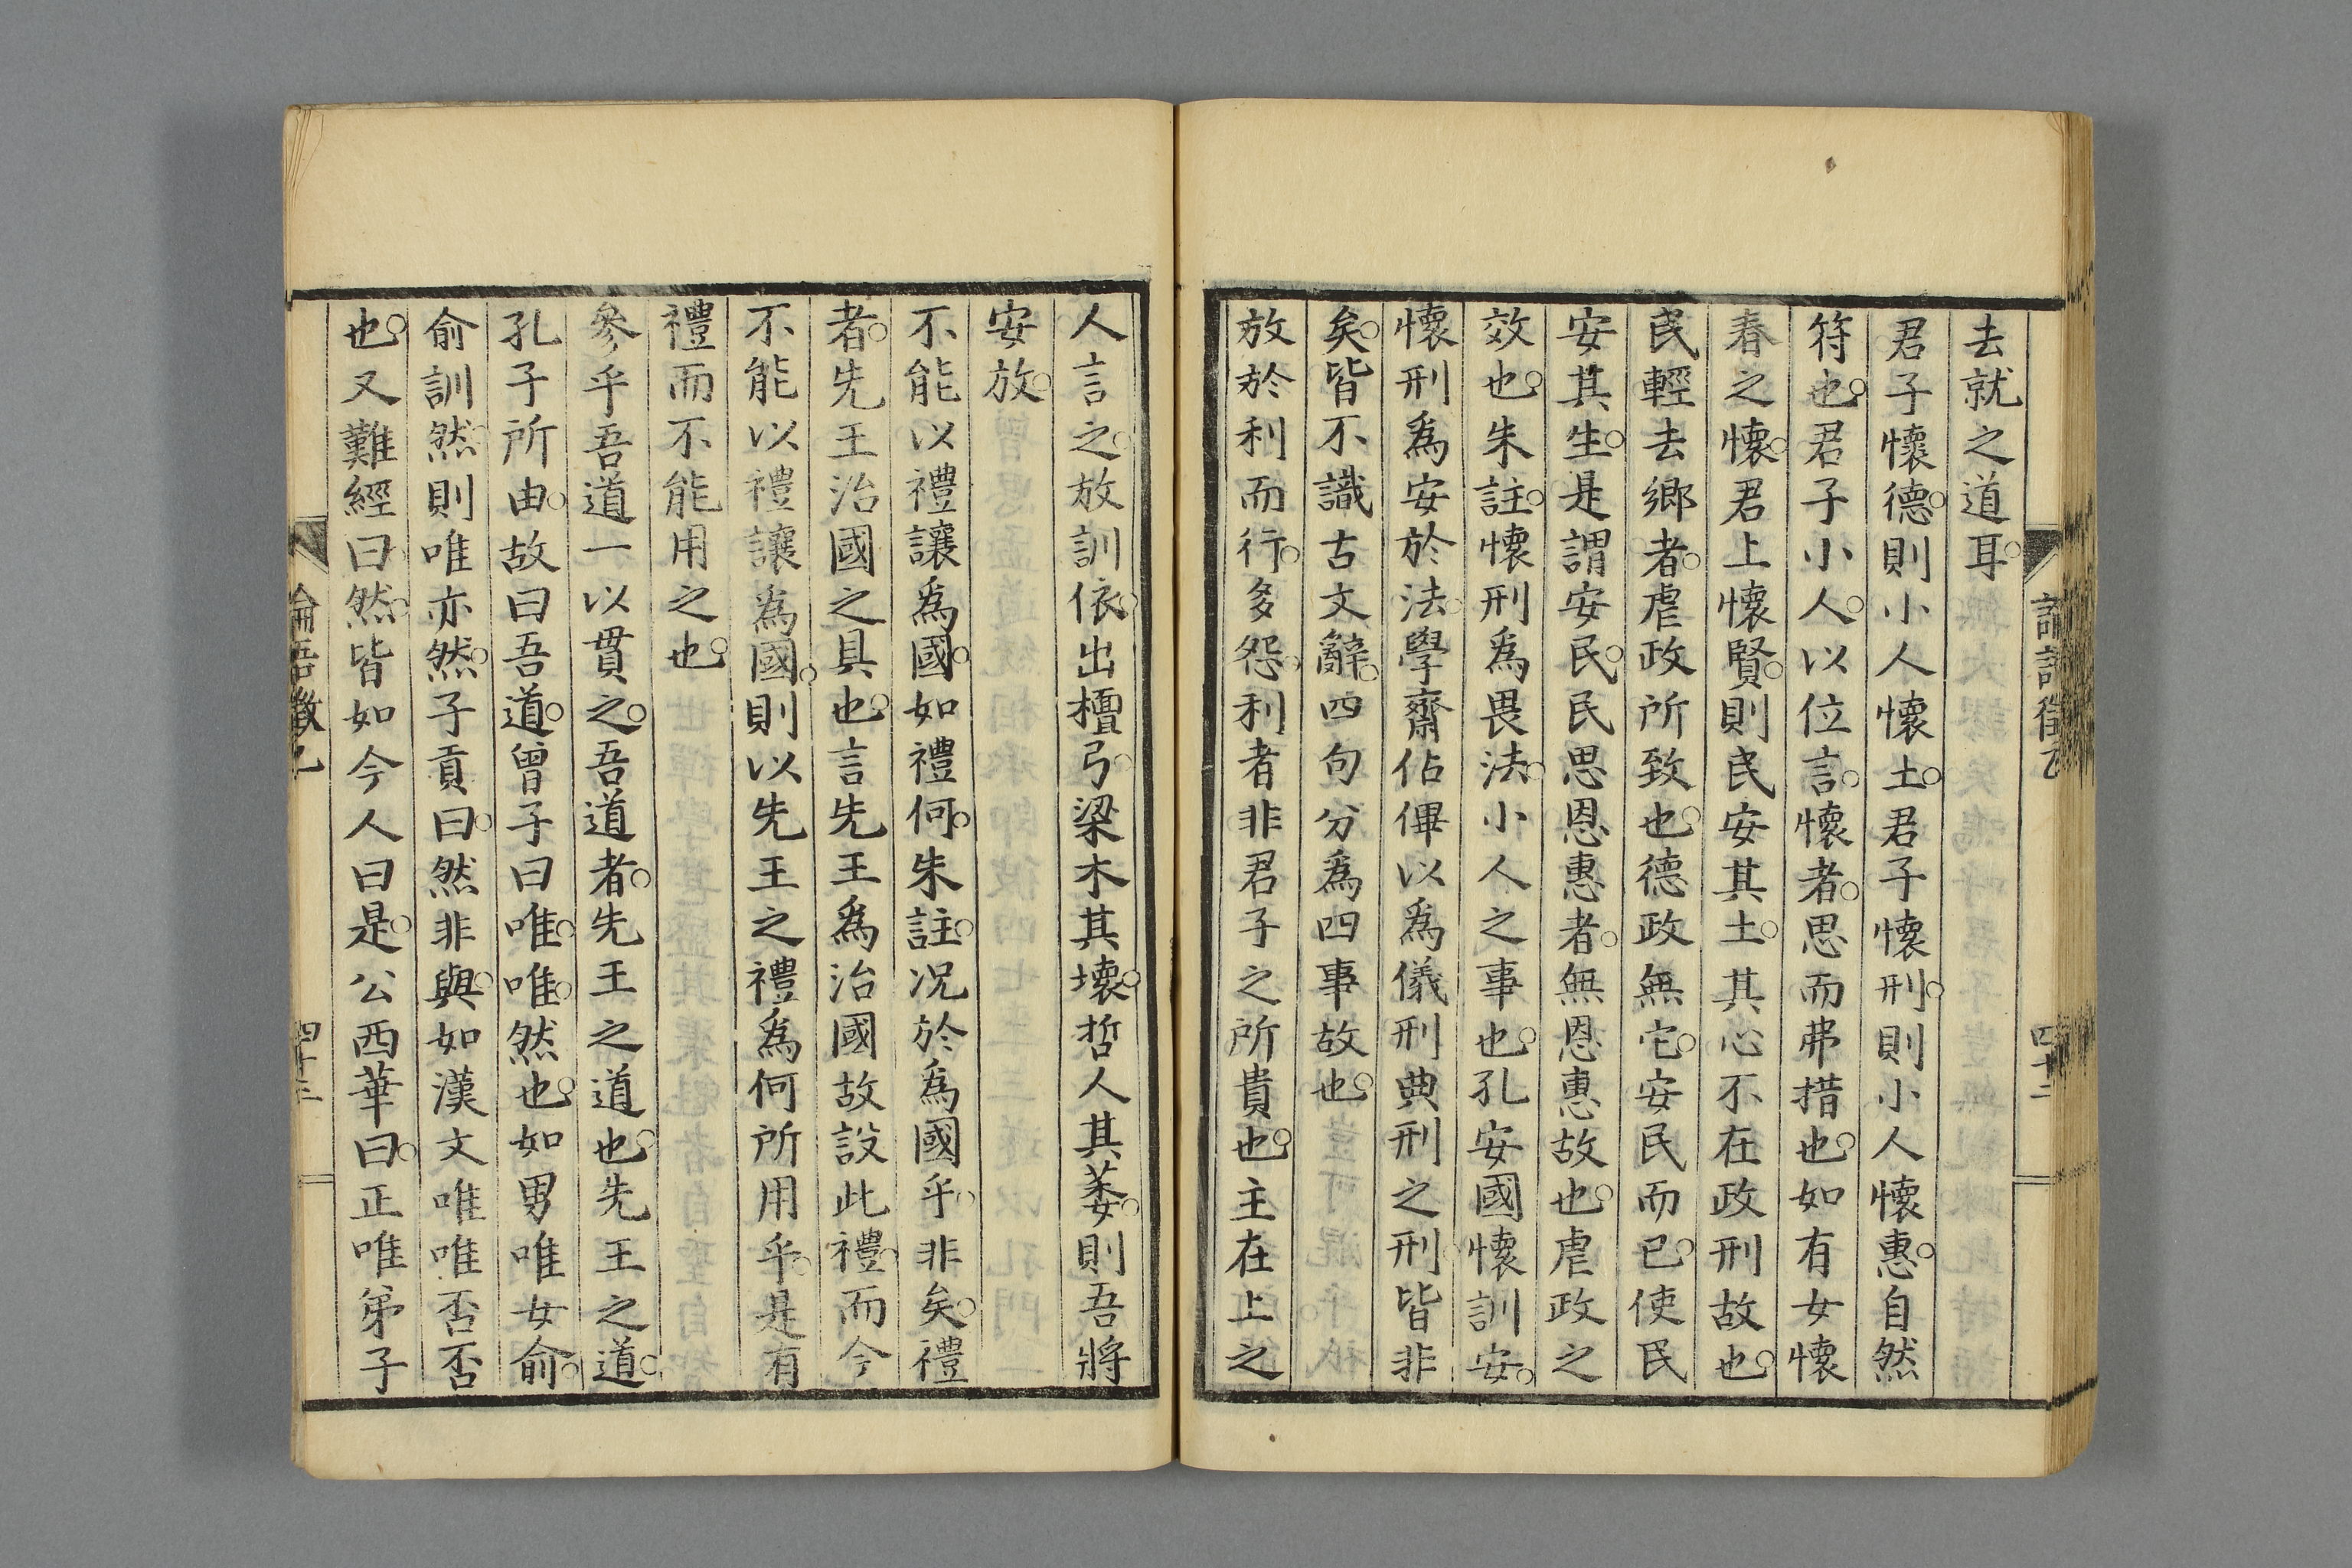 去就之道耳。
君子懷德。則小人懷土。君子懷刑。則小人懷惠。自然
符也。君子小人。以位言。懷者。思而弗措也。如有女懷
春之懷。君上懷賢。則民安其土。其心不在政刑故也。
民輕去鄉者。虐政所致也。德政無它。安民而已。使民
安其生。是謂安民。民思恩惠者。無恩惠故也。虐政之
效也。朱註。懷刑爲畏法。小人之事也。孔安國懷訓安。
懷刑爲安於法。學齋佔俾以爲儀刑典刑之刑。皆非
矣。皆不識古文辭。四句分爲四事故也。
放於利而行。多怨。利者非君子之所貴也。主在上之
論語徵乙
四十二
人言之。放訓依。出檀弓。梁木其壞。哲人其萎。則吾將
安放。
不能以禮讓爲國。如禮何。朱註。况於爲國乎。非矣。禮
者。先王治國之具也。言先王爲治國故設此禮。而今
不能以禮讓爲國。則以先王之禮爲何所用乎。是有
禮而不能用之也。
參乎吾道一以貫之。吾道者。先王之道也。先王之道。
孔子所由。故曰吾道。曾子曰唯。唯。然也。如男唯女俞。
俞訓然。則唯亦然。子貢曰。然非與。如漢文唯唯否否
也。又難經曰。然。皆如今人曰是。公西華曰。正唯弟子
論語徵乙
四十三